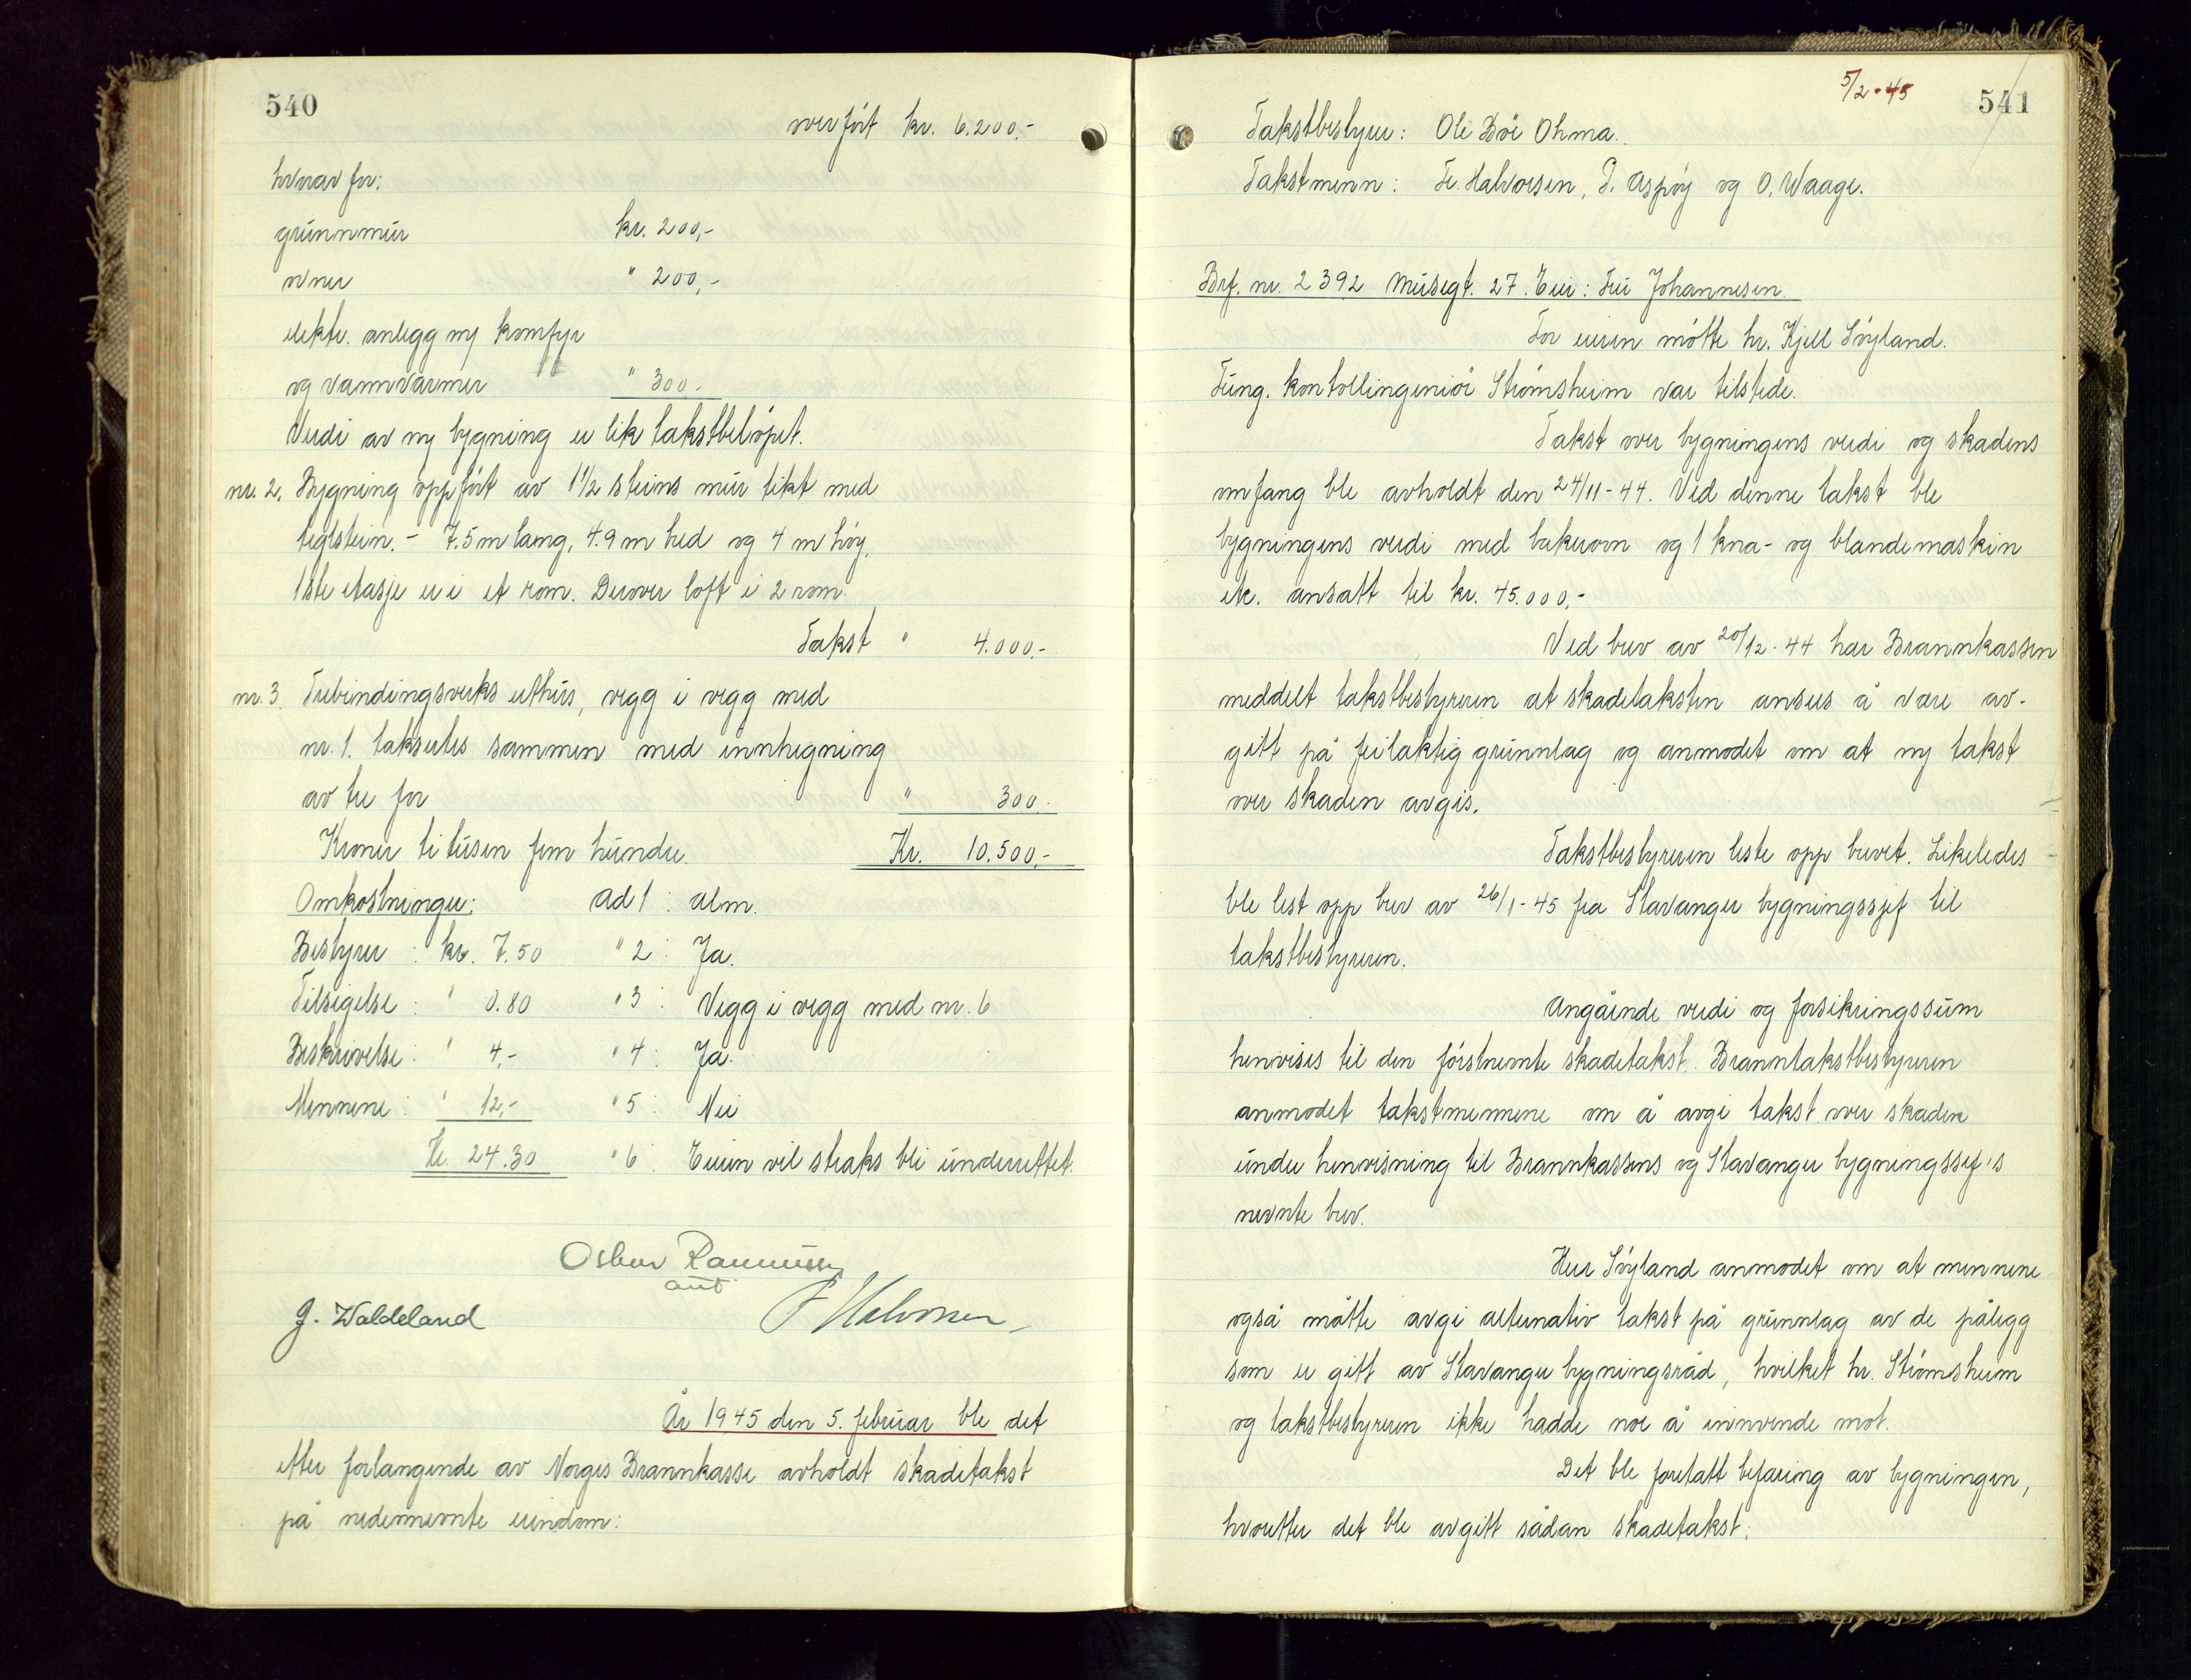 540
overført kr. 6.200,-
hvorav for:
grunnmur kr. 200,-
ovner " 200,-
elektr. anlegg m/ komfyr
og vannvarmer " 300.-
Verdi av ny bygning er lik takstbeløpet.
nr. 2. Bygning oppført av 1½ steins mur tekt med
teglstein. - 7.5 m lang, 4.9 m bred og 4 m høy.
1ste etasje er i et rom. Derover loft i 2 rom.
Takst " 4.000.-
nr. 3. Trebindingsverks uthus, vegg i vegg med
nr. 1. takseres sammen med innhegning
av tre for " 300.-
Kroner ti tusen fem hundre. Kr. 10.500,-
Omkostninger: ad 1: alm.
Bestyrer : kr. 7.50 " 2: Ja.
Tilsigelse : " 0.80 " 3: Vegg i vegg med nr. 6
Beskrivelse : " 4,- " 4: Ja.
Mennene : " 12,- " 5: Nei
Kr. 24.30 " 6: Eieren vil straks bli underrettet.
J. Waldeland
F Halvorsen
År 1945 den 5. februar ble det
etter forlangende av Norges Brannkasse avholdt skadetakst
på nedennevnte eiendom:
5/2-45
541
Takstbestyrer: Ole Bøe Ohma.
Takstmenn: Fr. Halvorsen, P. Aspøy og O. Waage.
Brf. nr. 2392 Musegt. 27. Eier: Fru Johannesen.
For eieren møtte hr. Kjell Søyland.
Fung. kontrollingeniør Strømsheim var tilstede.
Takst over bygningens verdi og skadens
omfang ble avholdt den 24/11-44. Ved denne takst ble
bygningens verdi med bakerovn og 1 kna- og blandemaskin
etc. ansatt til kr. 45.000,-
Ved brev av 20/12-44 har Brannkassen
meddelt takstbestyreren at skadetaksten anses å være av-
gitt på feilaktig grunnlag og anmodet om at ny takst
over skaden avgis.
Takstbestyreren leste opp brevet. Likeledes
ble lest opp brev av 26/1-45 fra Stavanger bygningssjef til
takstbestyreren.
Angående verdi og forsikringssum
henvises til den førstnevnte skadetakst. Branntakstbestyreren
anmodet takstmennene om å avgi takst over skaden
under henvisning til Brannkassens og Stavanger bygningssjef's
nevnte brev.
Herr Søyland anmodet om at mennene
også måtte avgi alternativ takst på grunnlag av de pålegg
som er gitt av Stavanger bygningsråd, hvilket hr. Strømsheim
og takstbestyreren ikke hadde noe å innvende mot.
Det ble foretatt befaring av bygningen,
hvoretter det ble avgitt sådan skadetakst: